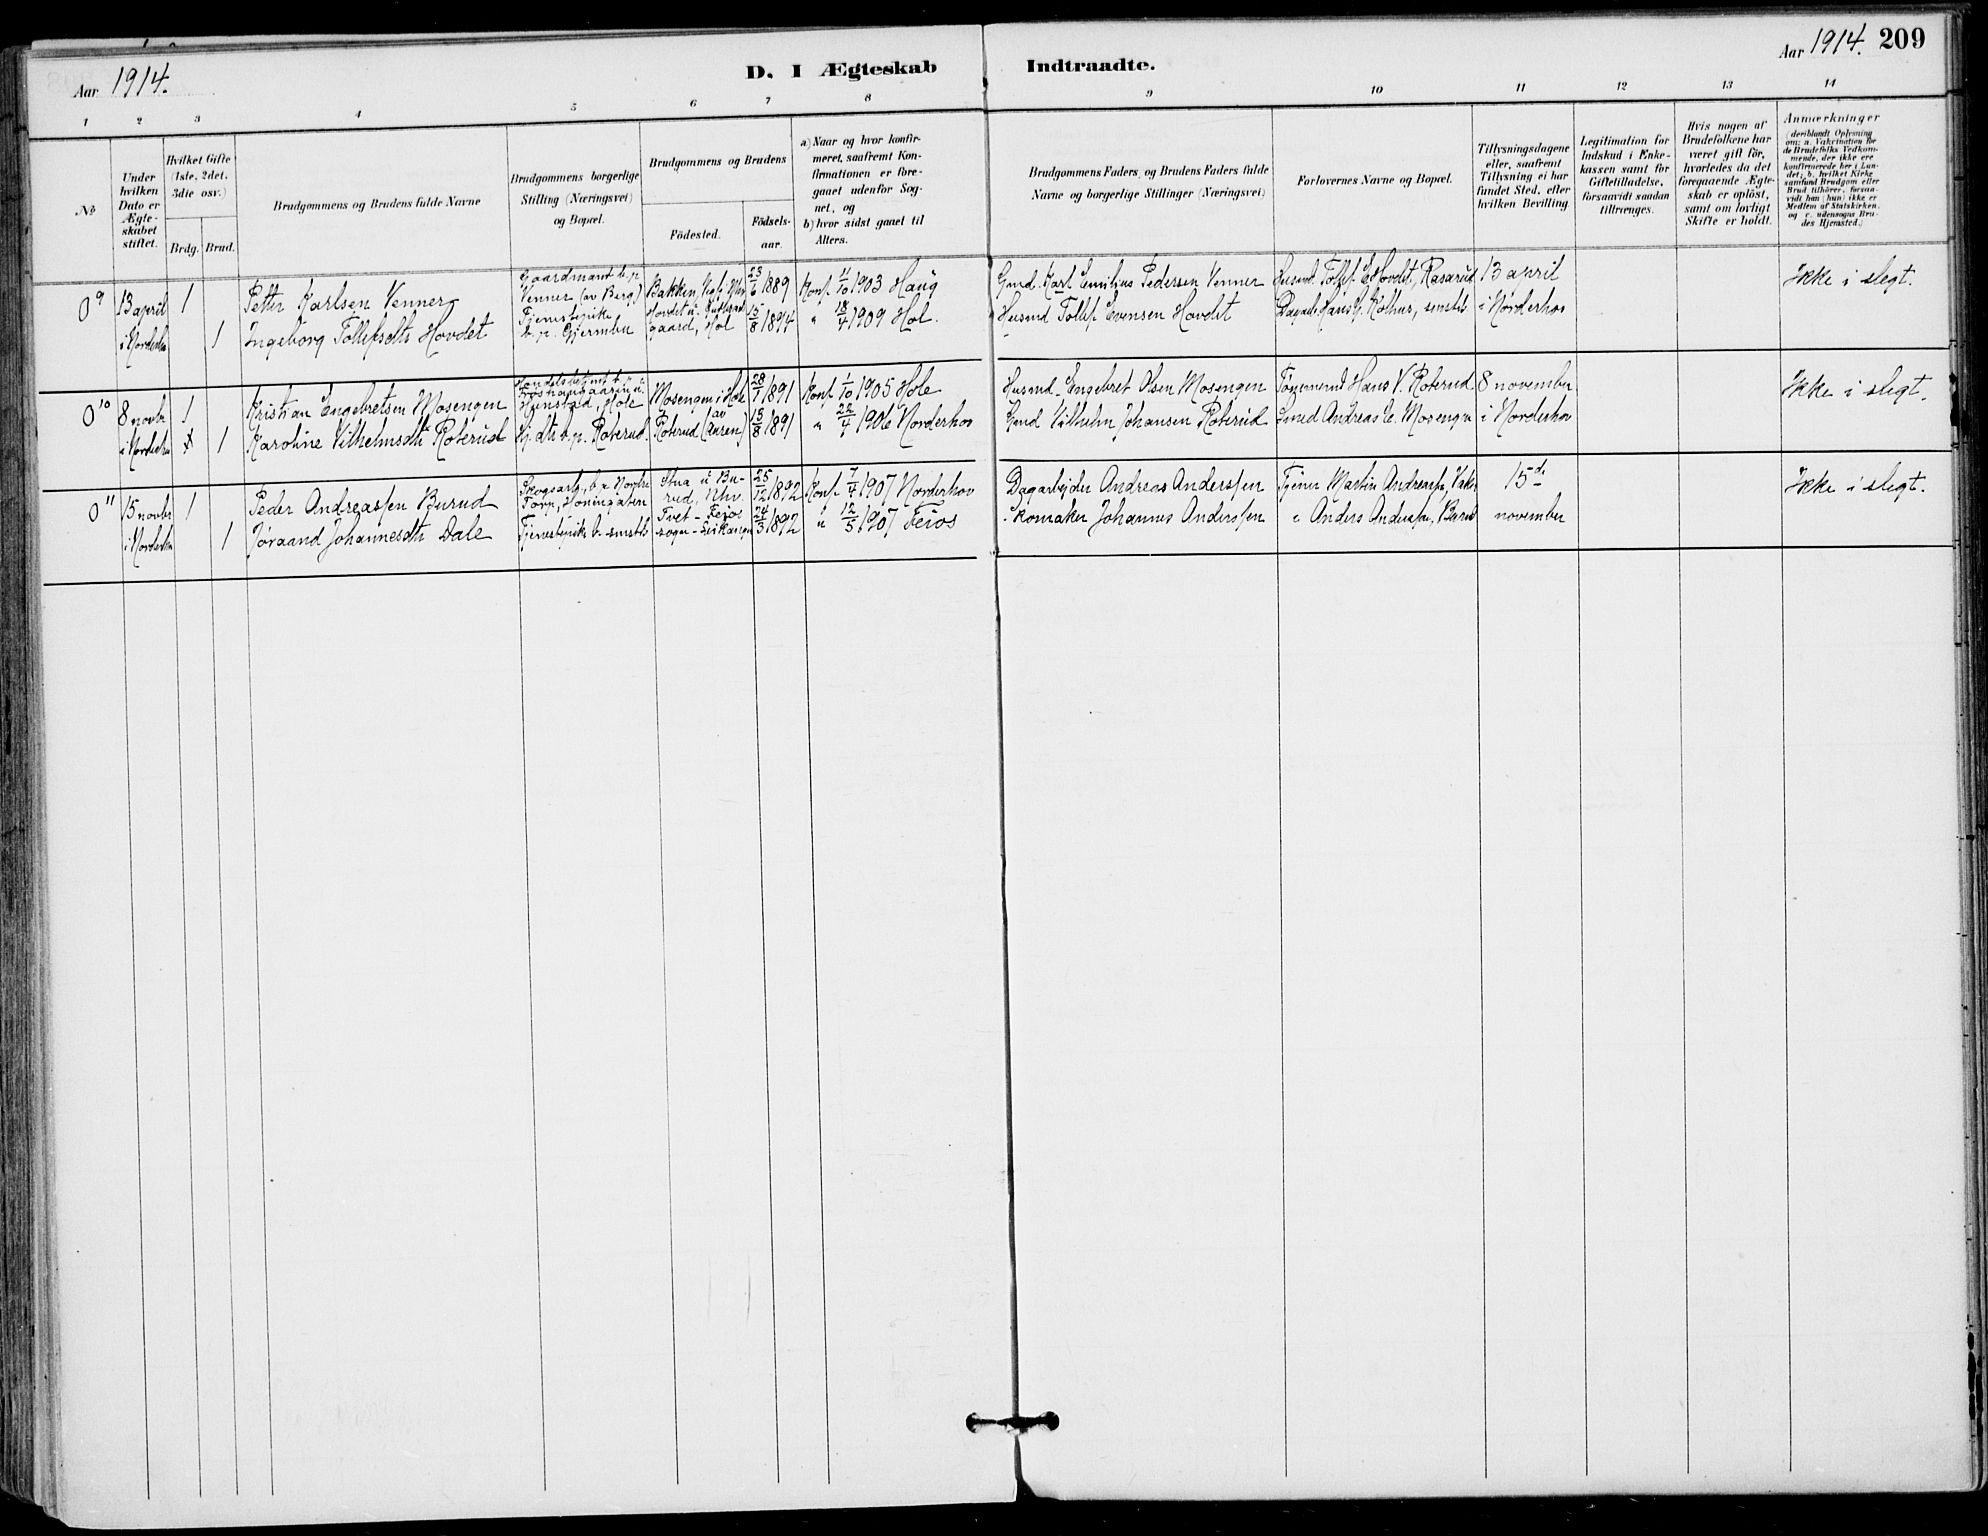 Aar 1914.
D. I Ægteskab Indtraadte.
Aar 1914. 209
1 2 3 4 5 6 7 8 9 10 11 12 13 14
No
Under hvilken Dato er Ægteskabet stiftet.
Hvilket Gifte (1ste, 2det, 3die osv.)
Brdg. Brud.
Brudgommens og Brudens fulde Navne
Brudgommens borgerlige Stilling (Næringsvei) og Bopæl.
Brudgommens og Brudens
Födested.
Födsels-aar.
a) Naar og hvor konfirmeret, saafremt Konfirmationen er foregaaet udenfor Sognet, og
b) hvor sidst gaaet til Alters.
Brudgommens Faders, og Brudens Faders fulde Navne og borgerlige Stillinger (Næringsvei)
Forlovernes Navne og Bopæl.
Tillysningsdagene eller, saafremt Tillysning ei har fundet Sted, efter hvilken Bevilling
Legitimation for Indskud i Enkekassen samt for Giftetilladelse, forsaavidt saadan tiltrænges.
Hvis nogen af Brudefolkene har været gift för, hvorledes da det foregaaende Ægteskab er oplöst, samt om lovligt Skifte er holdt.
Anmærkninger
(deriblandt Oplysning om: a. Vakcination for de Brudefolks Vedkommende, der ikke ere konfirmerede her i Landet; b. hvilket Kirkesamfund Brudgom eller Brud tilhörer, forsaavidt han (hun) ikke er Medlem af Statskirken, og c. udensogns Brudes Hjemsted.)
0 9 13 april i Norderho 1 Petter Karlsen Venner Gaardmand b.p. Venner (av Berg) Bakken, 23/6 1889 Konf. 11/10 1903 Haug Gmd. Karl Emilius Pedersen Venner Husmd. Tollef E. Hovdet, Rasarud 13 april Ikke i slegt.
1 Ingeborg Tollefsdtr Hovdet Tjenestepike b.p. Gjermbu Hovdet u. gaard, Hol 15/8 1894 " 18/4 1909 Hol. Husmd Tollef Evensen Hovdet Hans smstds. i Norderhov
0 10 8 novbr i Norderhov 1 Kristian Engebretsen Mosengen Hønstad, Hole Mosengen i Hole 28/7 1891 Konf. 1/10 1905 Hole Husmd. Engebret Olsen Mosengen Tømmermd Hans V. Roterud 8 november Ikke i slegt.
1 Karoline Vilhelmsdtr Roterud Gj. dtr b.p. Roterud Roterud (av Auren) 15/8 1891 " 22/4 1906 Norderhov Gmd Vilhelm Johansen Roterud Smed Andreas E. Mosengen i Norderhov
0 11 15 novbr i Norderhov 1 Peder Andreassen Burud Skogsarb., b.p. Nordre Torp, Hønengaten Stua u. Burud, Nhv. 25/12 1892 Konf. 7/4 1907 Norderhov Dagarbejder Andreas Anderssen Tjener Martin Andreass. 15de Ikke i slegt.
1 Jøraand Johannesdtr Dale Tjenestepike b. smstds Tvet - Feios sogn - Leikanger 24/3 1892 " 12/5 1907 Feios Skomaker Johannes Anderssen " Anders Anderssen, Burud november